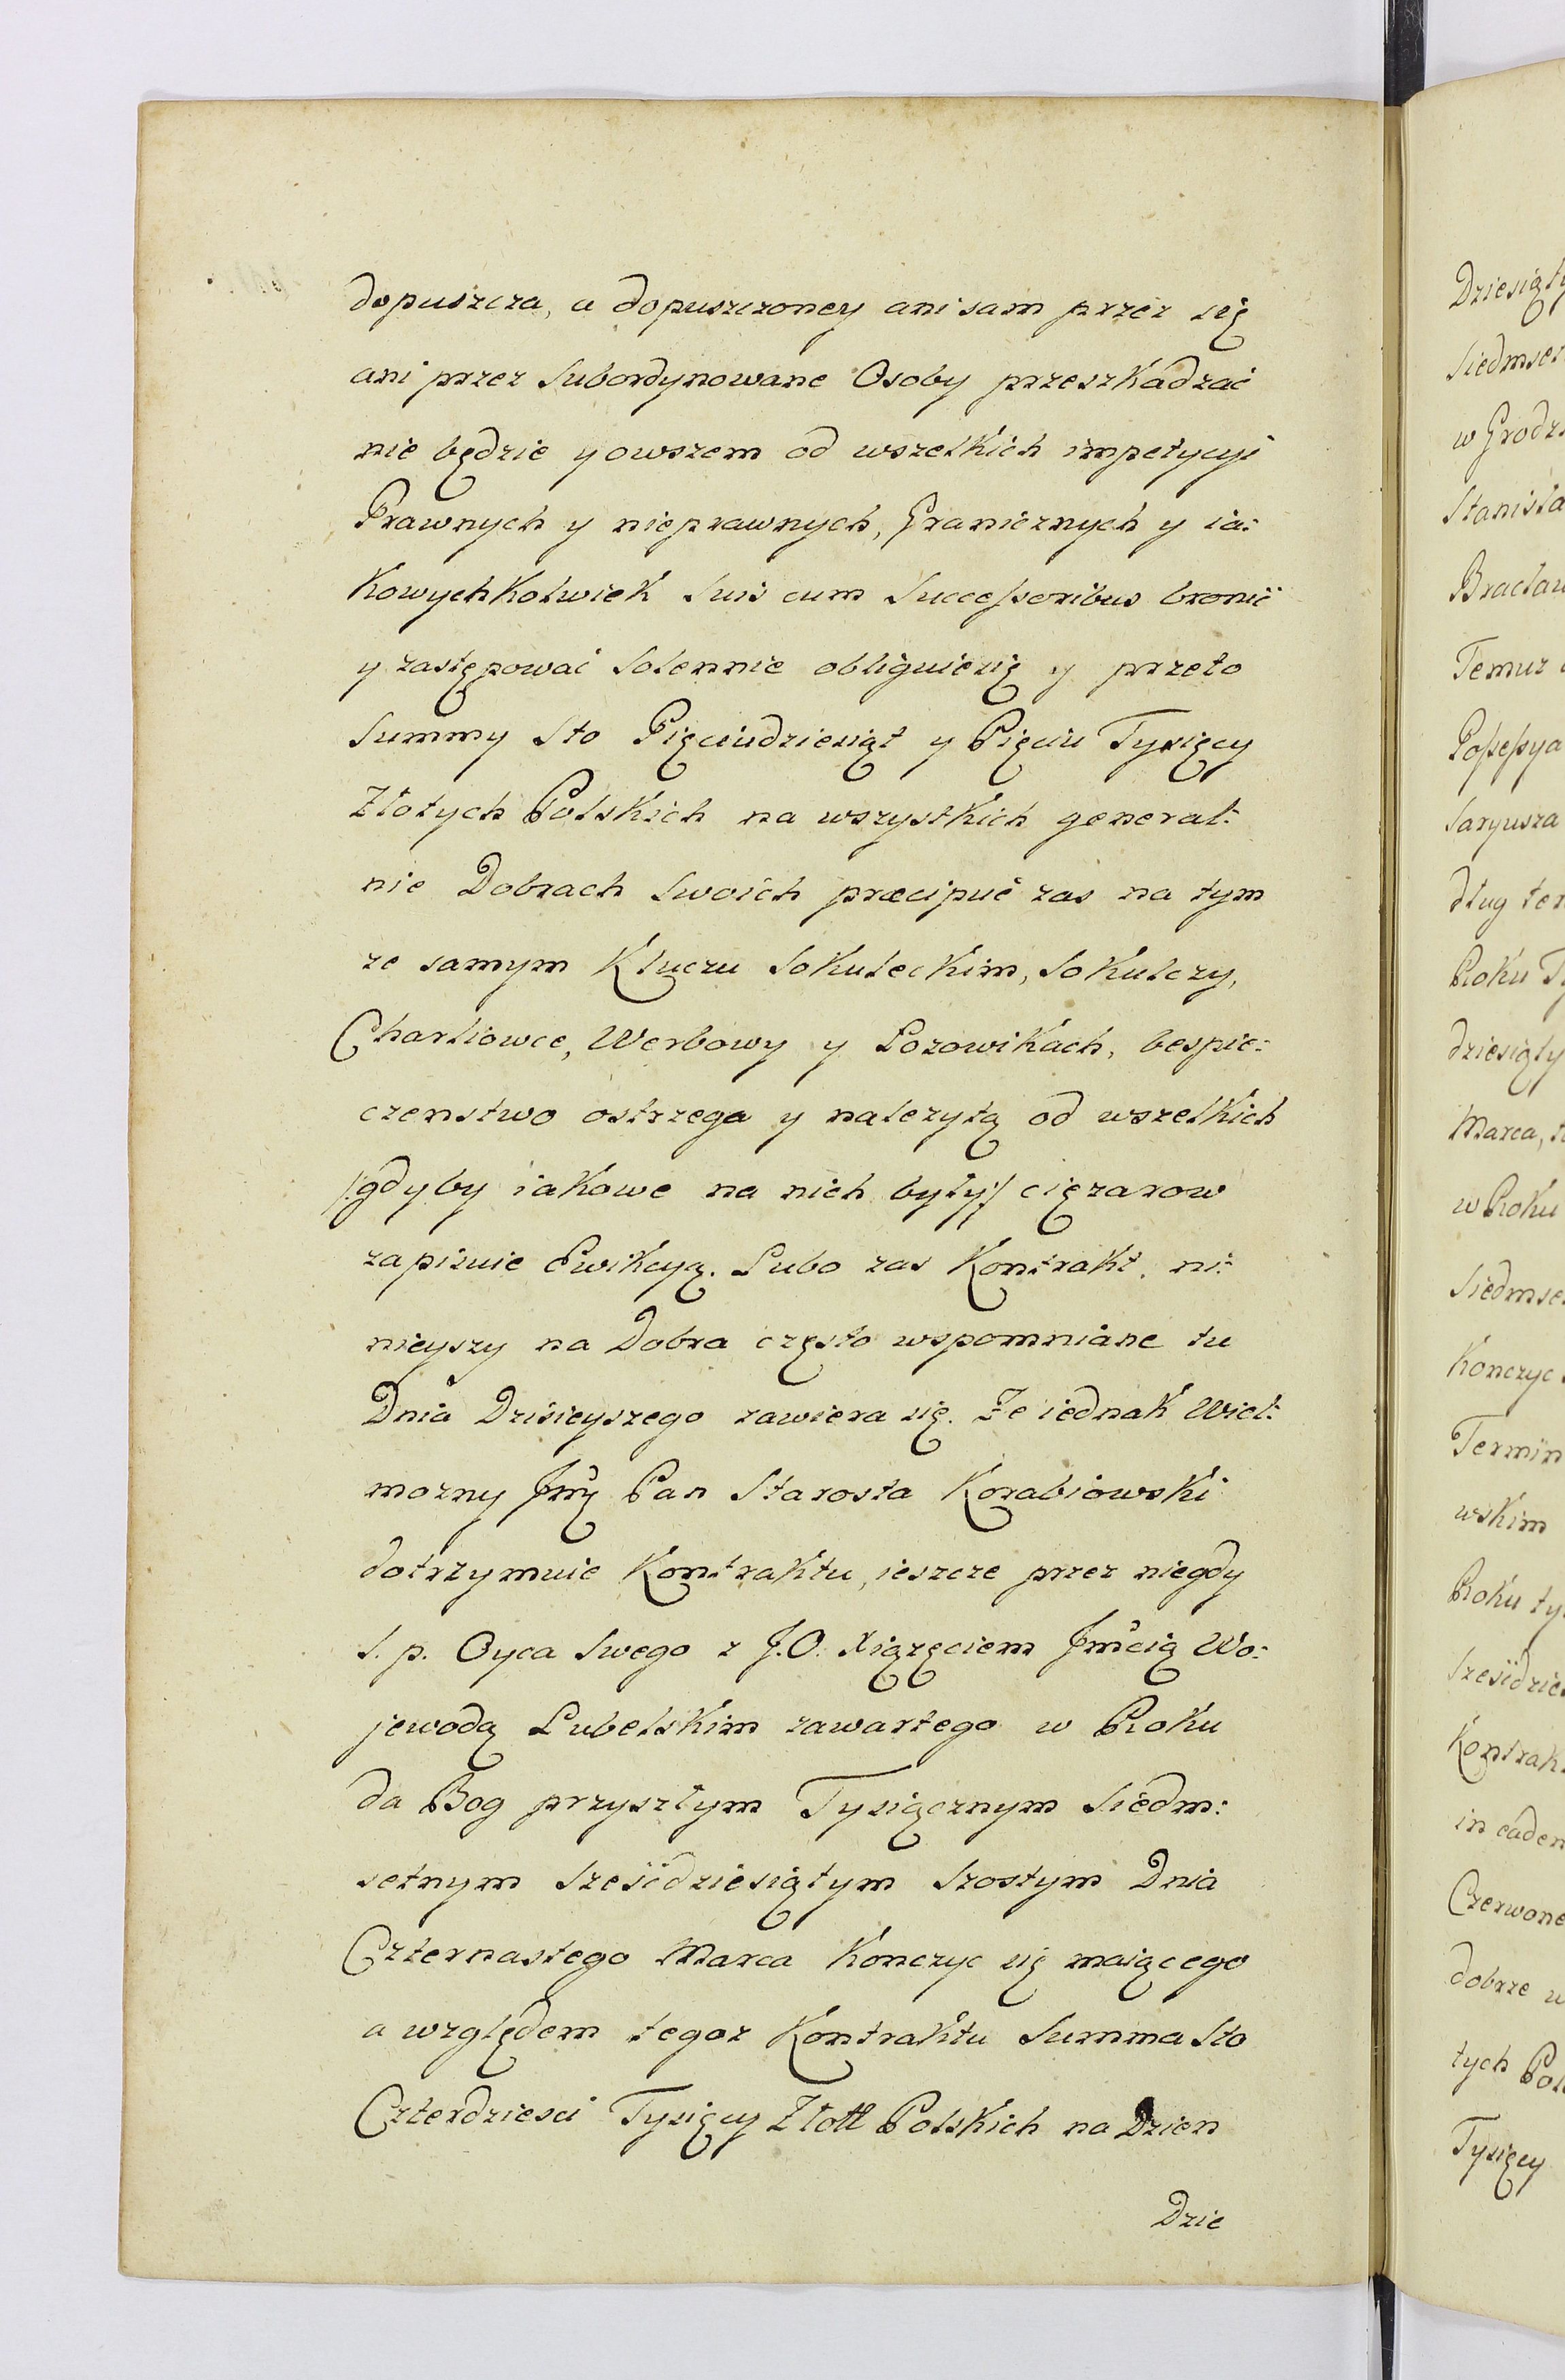 dopuszcza, a dopuszczoney ani sam przez się
ani przez Subordynowane Osoby przeszkadzać
nie będzie y owszem od wszelkich impetycyi
Prawnych y nieprawnych, Granicznych y ia:
kowychkolwiek Suis cum Successoribus bronić
y zastępować Solennie obliguiesię y przeto
Summy Sto Pięciudziesiąt y Pięciu Tysięcy
Złotych Polskich na wszystkich general:
nie Dobrach Swoich præcipuè zas na tym
ze samym Kluczu Sokuleckim, Sokulczy,
Charliowce, Werbowy y Łozowikach, bespie:
czenstwo ostrzega y nalezytą od wszelkich
/:gdyby iakowe na nich były:/ cięzarow
zapisuie Ewikcyą. Lubo zas Kontrakt ni:
nieyszy na Dobra często wspomniane tu
Dnia Dzisieyszego zawiera się. Ze iednak Wiel:
mozny Jmę Pan Starosta Korabiowski
dotrzymuie Kontraktu, ieszcze przez niegdy
S. p. Oyca Swego z J.O. Xiązęciem Jmcią Wo:
jewodą Lubelskim zawartego w Roku
da Bog przyszłym Tysiącznym Siedm:
setnym Sześćdziesiątym Szostym Dnia
Czternastego Marca konczyc się maiącego
a względem tegoz Kontraktu Summa Sto
Czterdziesci Tysięcy Złotł Polskich na Dzien
Dzie
Dziesiąty
Siedmset
w Grodz
Stanisła
Bracław
Temuz
Possessya
Saryusza
dług ter
Roku Ty
dziesiąty
Marca,
w Roku
Siedmse
Konczyc
Termin
wskim
Roku ty
Sześćdzie
Kontrak
in eaden
Czerwone
dobrze w
tych Pol
Tysięcy